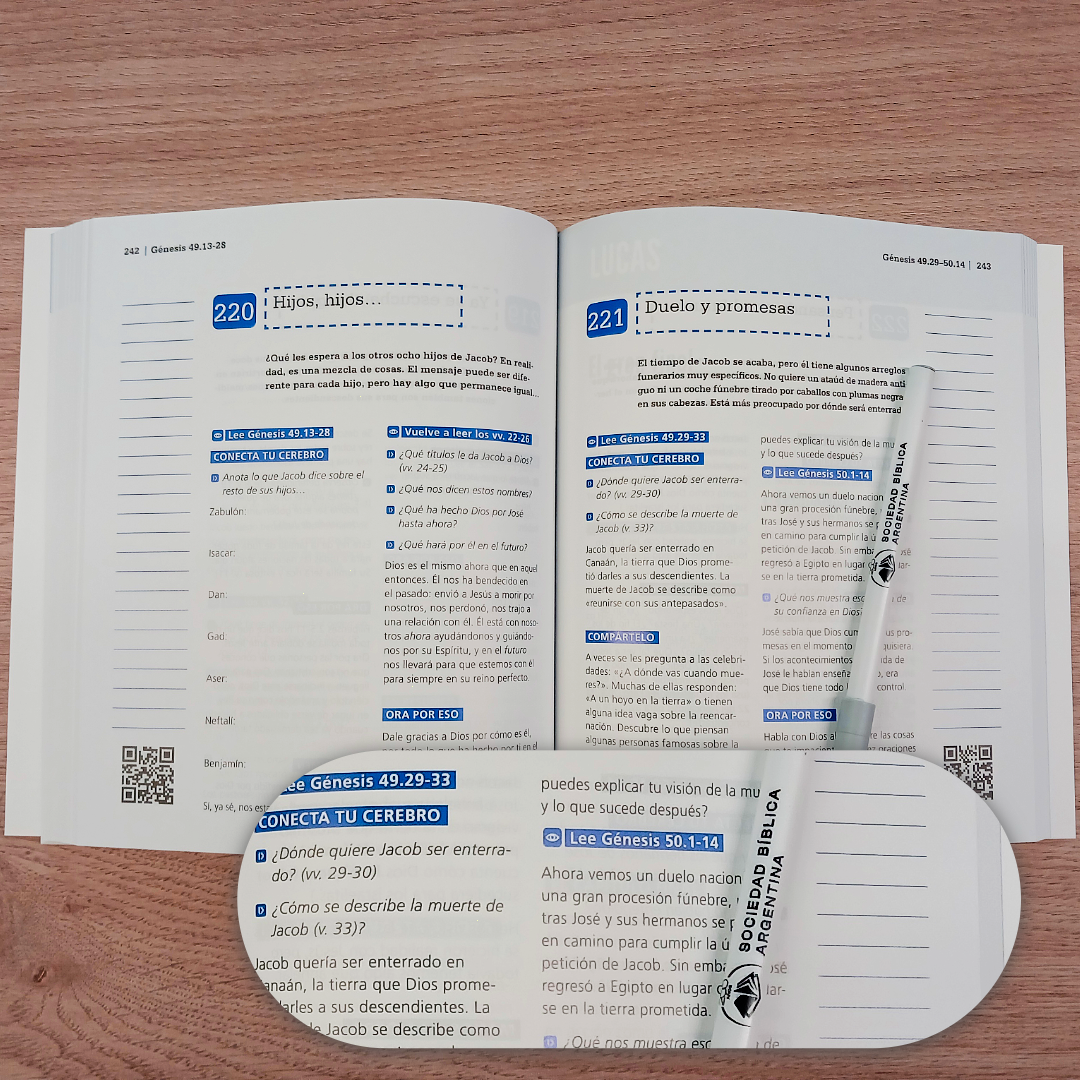 242 | Génesis 49.13-28
220
Hijos, hijos...
¿Qué les espera a los otros ocho hijos de Jacob? En reali-
dad, es una mezcla de cosas. El mensaje puede ser dife-
rente para cada hijo, pero hay algo que permanece igual...
Lee Génesis 49.13-28
CONECTA TU CEREBRO
Anota lo que Jacob dice sobre el
resto de sus hijos...
Zabulón:
Isacar:
Dan:
Gad:
Aser:
Neftalí:
Benjamín:
Sí, ya sé, nos
Vuelve a leer los vv. 22-26
¿Qué títulos le da Jacob a Dios?
(vv. 24-25)
¿Qué nos dicen estos nombres?
¿Qué ha hecho Dios por José
hasta ahora?
¿Qué hará por él en el futuro?
Dios es el mismo ahora que en aquel
entonces. Él nos ha bendecido en
el pasado: envió a Jesús a morir por
nosotros, nos perdonó, nos trajo a
una relación con él. Él está con noso-
tros ahora ayudándonos y guiándo-
nos por su Espíritu, y en el futuro
nos llevará para que estemos con él
para siempre en su reino perfecto.
ORA POR ESO
Dale gracias a Dios por cómo es él,
por todo lo que ha hecho por ti en el
Génesis 49.29–50.14 | 243
LUCAS
221
Duelo y promesas
El tiempo de Jacob se acaba, pero él tiene algunos arreglos
funerarios muy específicos. No quiere un ataúd de madera anti
guo ni un coche fúnebre tirado por caballos con plumas negra
en sus cabezas. Está más preocupado por dónde será enterrad
Lee Génesis 49.29-33
CONECTA TU CEREBRO
¿Dónde quiere Jacob ser enterra-
do? (vv. 29-30)
¿Cómo se describe la muerte de
Jacob (v. 33)?
Jacob quería ser enterrado en
Canaán, la tierra que Dios prome-
tió darles a sus descendientes. La
muerte de Jacob se describe como
«reunirse con sus antepasados».
COMPÁRTELO
A veces se les pregunta a las celebri-
dades: «¿A dónde vas cuando mue-
res?». Muchas de ellas responden:
«A un hoyo en la tierra» o tienen
alguna idea vaga sobre la reencar-
nación. Descubre lo que piensan
algunas personas famosas sobre la
puedes explicar tu visión de la mu
y lo que sucede después?
Lee Génesis 50.1-14
Ahora vemos un duelo nacion
una gran procesión fúnebre,
tras José y sus hermanos se p
en camino para cumplir la ú
petición de Jacob. Sin emba osé
regresó a Egipto en lugar lar-
se en la tierra prometida.
¿Qué nos muestra esc de
su confianza en Dios
José sabía que Dios cum us pro-
mesas en el momento quisiera.
Si los acontecimientos ida de
José le habían enseña , era
que Dios tiene todo control.
ORA POR ESO
Habla con Dios al re las cosas
SOCIEDAD BÍBLICA
ARGENTINA
ee Génesis 49.29-33
CONECTA TU CEREBRO
¿Dónde quiere Jacob ser enterra-
do? (vv. 29-30)
¿Cómo se describe la muerte de
Jacob (v. 33)?
Jacob quería ser enterrado en
anaán, la tierra que Dios prome-
darles a sus descendientes. La
de Jacob se describe como
puedes explicar tu visión de la mu
y lo que sucede después?
Lee Génesis 50.1-14
Ahora vemos un duelo nacion
una gran procesión fúnebre,
tras José y sus hermanos se p
en camino para cumplir la ú
petición de Jacob. Sin emba osé
regresó a Egipto en lugar lar-
se en la tierra prometida.
¿Qué nos muestra esc de
SOCIEDAD BÍBLICA
ARGENTINA